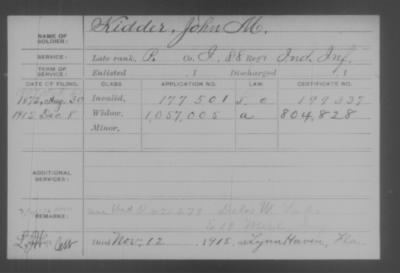 NAME OF SOLDIER: Kidder, John M.
SERVICE: Late rank, P. Co. I, 88 Reg't Ind. Inf.
TERM OF SERVICE: Enlisted , 1 Discharged , 1
DATE OF FILING. CLASS. APPLICATION NO. LAW. CERTIFICATE NO.
1872, Aug. 30 Invalid, 177 501 199 337
1915 Dec. 8 Widow, 1,057,005 a 804,828
Minor,
ADDITIONAL SERVICES:
REMARKS:
Died Nov. 12 1915, at Lynn Haven, Fla.